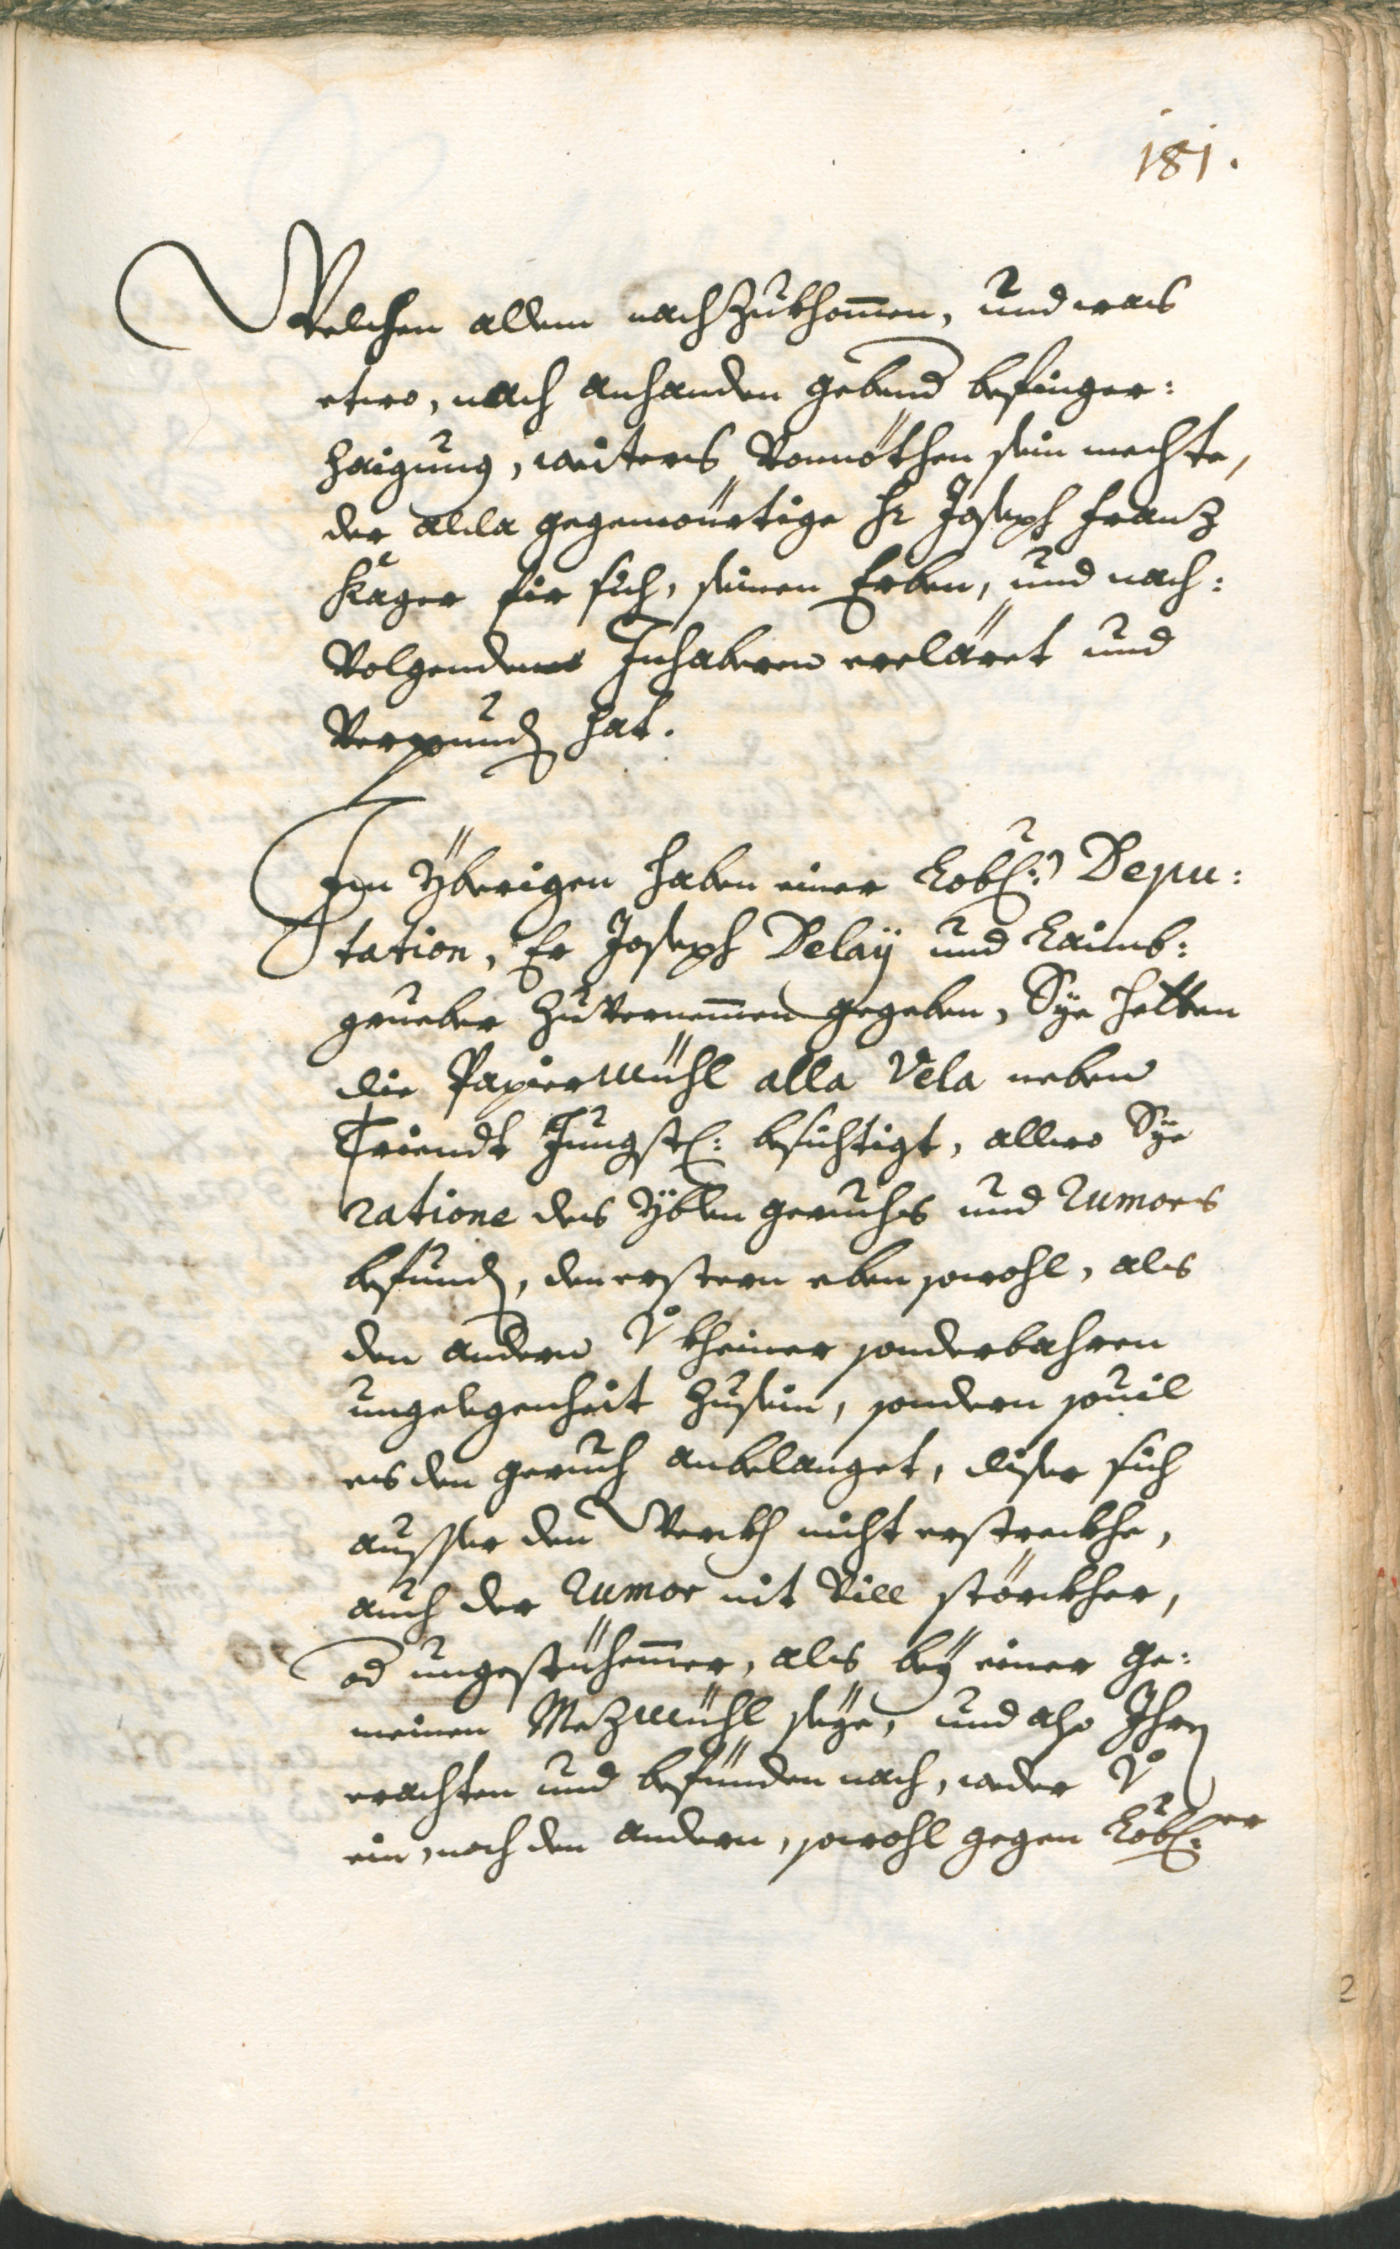 181.
Welchem allem nachzukhom̅en, und was
etwo, nach anhanden gebend befinger:
zaigung, weiters Vonnöthen sein mechte,
der alda gegenwürtige Hr Joseph Franz
Kager für sich, seinen Erben, und nach:
Volgenden Inhaberen erclärt und
hat.
Im Yberigen haben einer Lobl: Depu:
tation, Er Joseph Delaÿ und Laimb:
grueber zuvernem̅en gegeben, Sÿe hetten
die Papiermühl alla Vela neben
Triendt Jüngstl: besichtigt, allwo Sÿe
ratione des Yblen geruchs und Rumors
befund, den erstern eben sowohl, als
den andern Vo kheiner sonderbahren
ungelegenheit zusein, sondern sovil
es den geruch anbelanget, diser sich
ausser den Werckh nicht erstreckhe,
auch der Rumor nit Vill störckher,
od ungestühem̅er, als beÿ einer ge:
meinen Mezmühl seÿe, und also Ihrn
erachten und befünden nach, weder Vo
ein, noch den andern, sowohl gegen Löbl:er
2